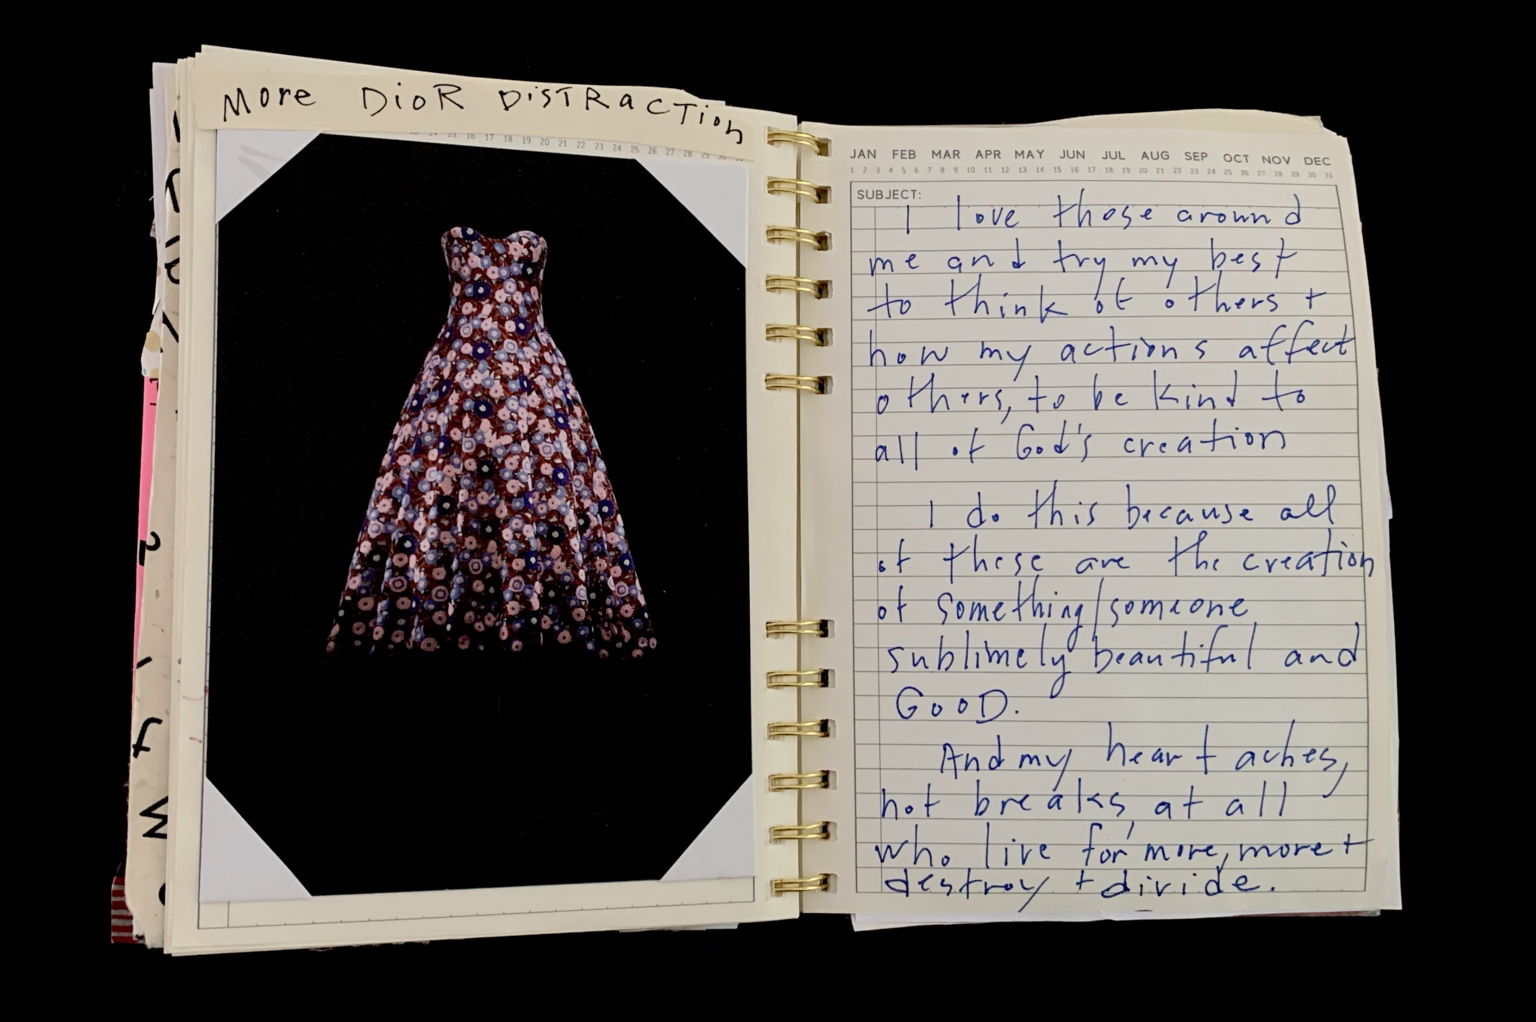 MORE DIOR DISTRACTION
15 16 17 18 19 20 21 22 23 24 25 26 27 28 29 30 31
JAN FEB MAR APR MAY JUN JUL AUG SEP OCT NOV DEC
1 2 3 4 5 6 7 8 9 10 11 12 13 14 15 16 17 18 19 20 21 22 23 24 25 26 27 28 29 30 31
SUBJECT:
I love those around
me and try my best
to think of others +
how my actions affect
others, to be kind to
all of God's creation
I do this because all
of these are the creation
of something/someone
sublimely beautiful and
GOOD.
And my heart aches,
not breaks, at all
who live for more, more +
destroy + divide.